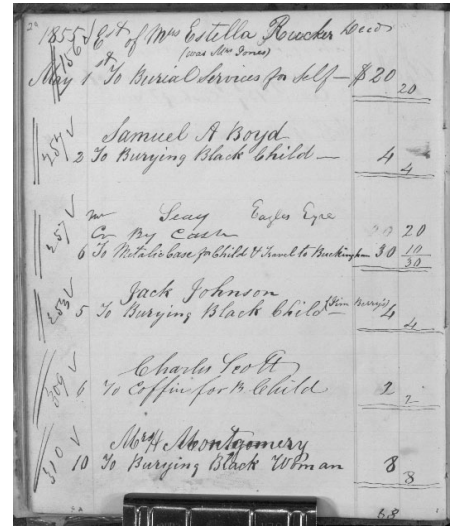 1855 Est of Mrs Estella Rucker Decd
(was Mrs Jones)
156
May 1st To Burial Services for Self — $20
20
Samuel A Boyd
257 2 To Burying Black Child — 4
4
Mr Seay Eagles Eyre
Cr By Cash 20
251 6 To Metalic Case for Child & Travel to Buckingham 30 10
30
Jack Johnson
253 5 To Burying Black Child — 4
4
Charles Scott
309 6 To Coffin for B. Child 2
2
Mrs H Montgomery
310 10 To Burying Black Woman 8
8
68